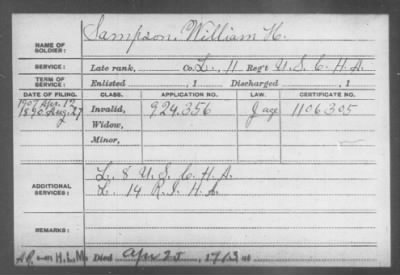 NAME OF SOLDIER: Sampson, William H.
SERVICE: Late rank, Co. L, 11 Reg't U. S. C. H. A.
TERM OF SERVICE: Enlisted , 1 Discharged , 1
DATE OF FILING. CLASS. APPLICATION NO. LAW. CERTIFICATE NO.
1907 Apr. 12
1890 Aug. 27 Invalid, 924.356 1106305
Widow,
Minor,
ADDITIONAL SERVICES: L. 8 U. S. C. H. A.
L. 14 R. I. H. A.
REMARKS:
Died Apr 25, 1913 at